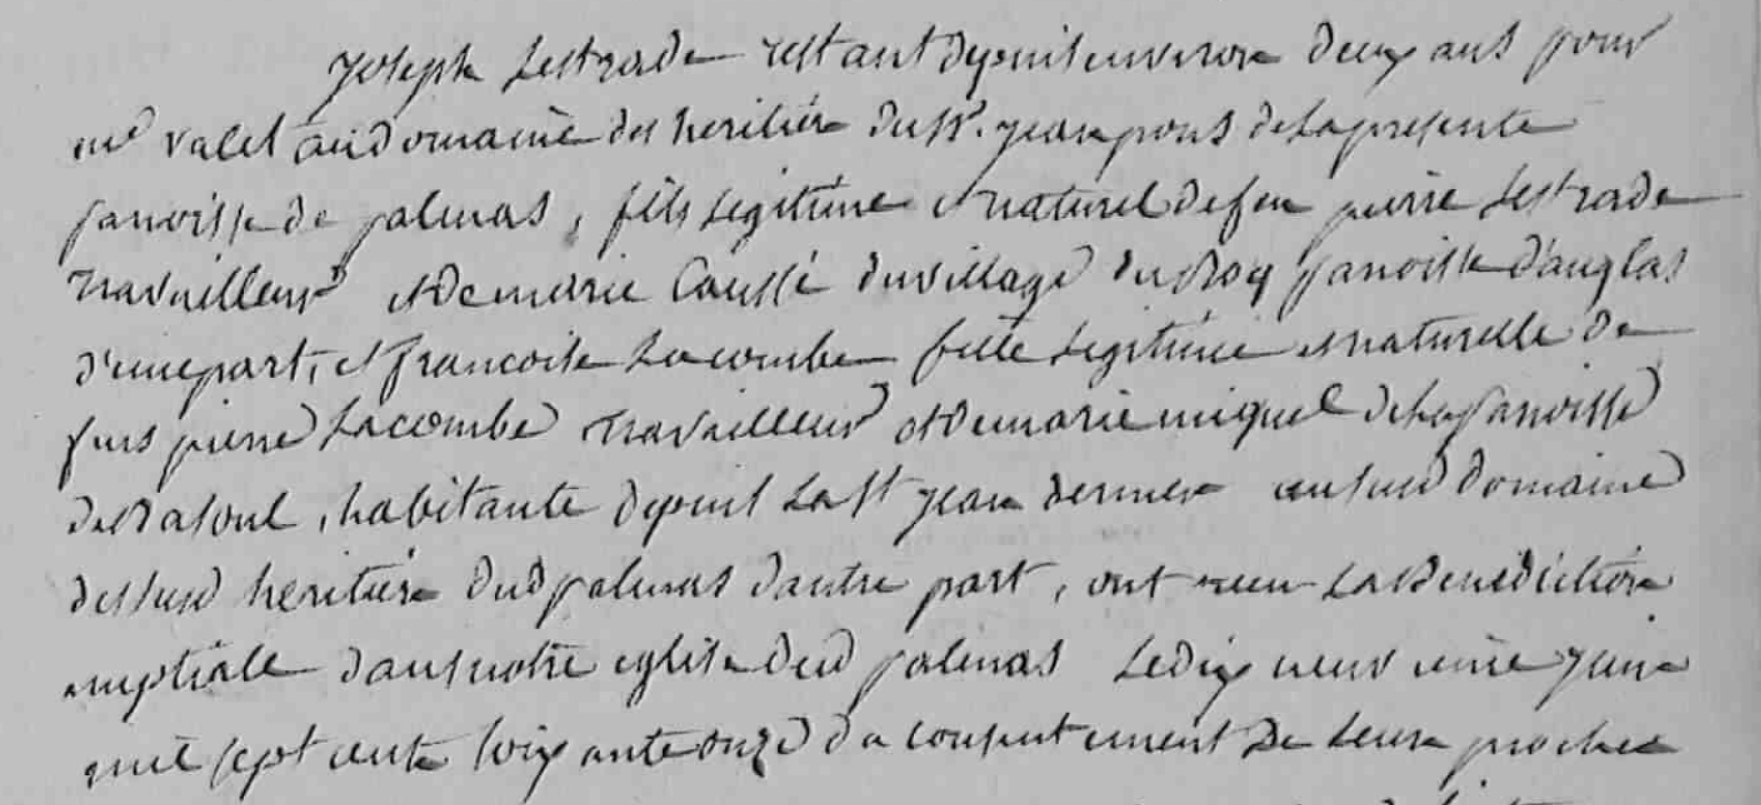 joseph Lestrade restant depuis environ deux ans pour
me valet au domaine des heritiers du sr. jean pons de la presente
parroisse de palmas, fils legitime et naturel de feu pierre Lestrade
travailleur et de marie Caussé du village du Roq parroisse d'anglas
d'une part, et francoise Lacombe fille legitime et naturelle de
furs pierre Lacombe travailleur et de marie miquel de la parroisse
de , habitante depuis la st jean derniere au susd domaine
des susd heritiers dud palmas d'autre part, ont recu la Benediction
nuptiale dans notre eglise dud palmas le dix neuvieme juin
mil sept cents soixante onze du consentement de leurs proches